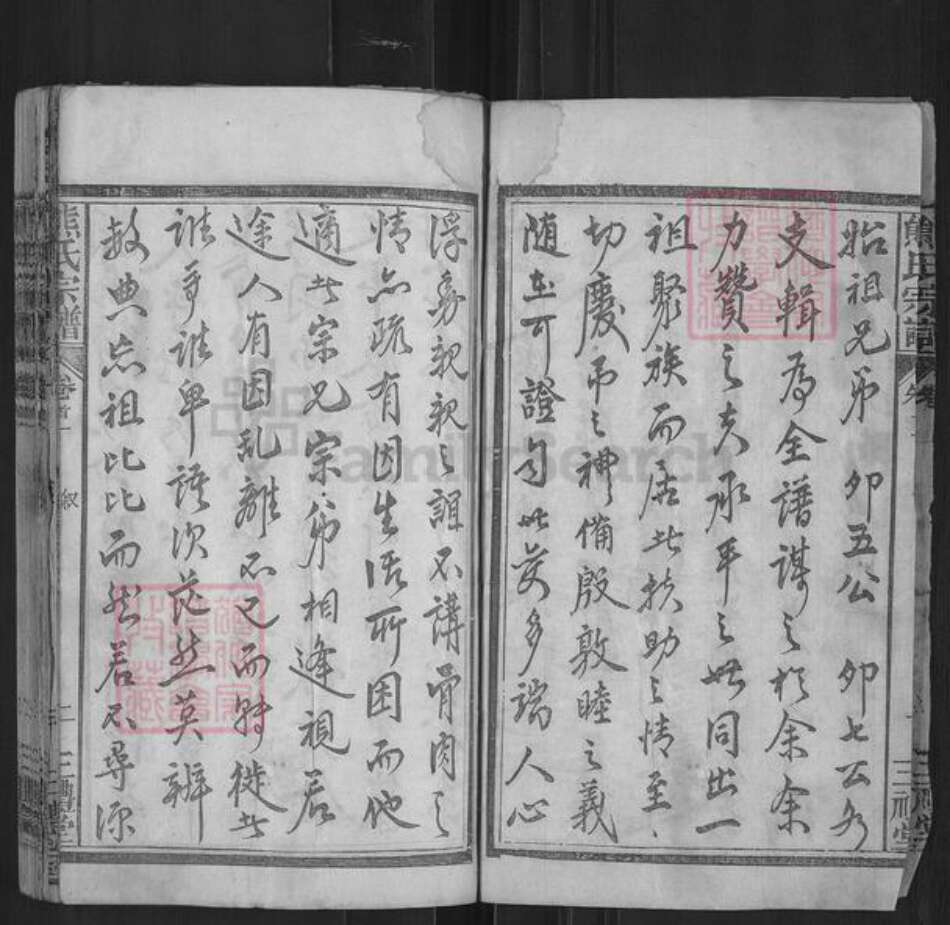 熊氏宗譜
卷首
三禮堂
始祖兄弟 卯五公 卯七公各
支輯為全譜謀之於余余
力贊之夫承平之世同出一
祖聚族而居此扶助之情至
切慶吊之禮備殷敦睦之義
隨在可證自世變多端人心
浮薄親親之誼不講骨肉之
情亦疏有因生活所困而他
適者宗兄宗弟相逢視若
途人有因亂離不已而轉徙者
誰爭誰卑諸次茫然莫辨
數典忘祖比比而然若不尋源
熊氏宗譜
卷首
敘
二
三禮堂
FamilySearch